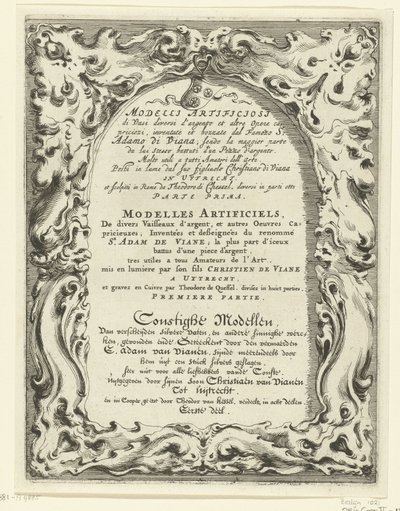 MODELLI ARTIFICIOSI
di Vasi diversi d'argento et altre Opere ca-
pricciozi, inventate et del Famoso Sr.
Adamo di Viana, sendo la maggior parte
da lui stesso battuti d'un Pezzo d'argento.
Molto utili a tutti Amatori dell arte.
Posti in lume dal suo figliuolo Christiano di Viana
IN UYTRECHT
et scolpiti in Rame da Theodoro di Chessel, divisi in parti otto
PARTE PRIMA.
MODELLES ARTIFICIELS,
De divers Vaisseaux d'argent, et autres Oeuvres Ca-
pricieuzes, Inventées et desseignées du renommé
Sr. ADAM DE VIANE, la plus part d'iceux
battus d'une piece d'argent,
tres utiles a tous Amateurs de l'Art.
mis en lumiere par son fils CHRISTIEN DE VIANE
A UYTRECHT.
et gravez en Cuivre par Theodore de Quessel. divisée in huict parties.
PREMIERE PARTIE.
Constighe Modellen,
Van verscheijden Silvere Vaten, en andere sinnighe werc-
ken, gevonden ende Geteeckent door den vermaerden
E. Adam van Vianen, sijnde meerendeels door
hem uijt een stuck silvers geslagen.
Zeer nut voor alle liefhebbers vande Conste.
Uijtgegeven door sijnen Soon Christiaen van Vianen
Tot Uijtrecht.
en in Cooper ge-etst door Theodor van Kessel. verdeelt, in acht deelen.
Eerste deel.